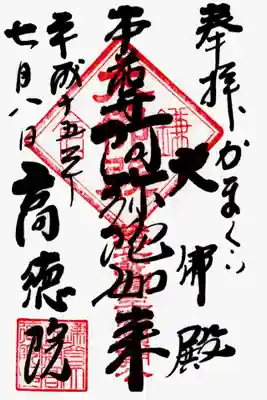 奉拝 かまくら
大佛殿
本尊阿弥陀如来
平成十五年
七月八日
高徳院